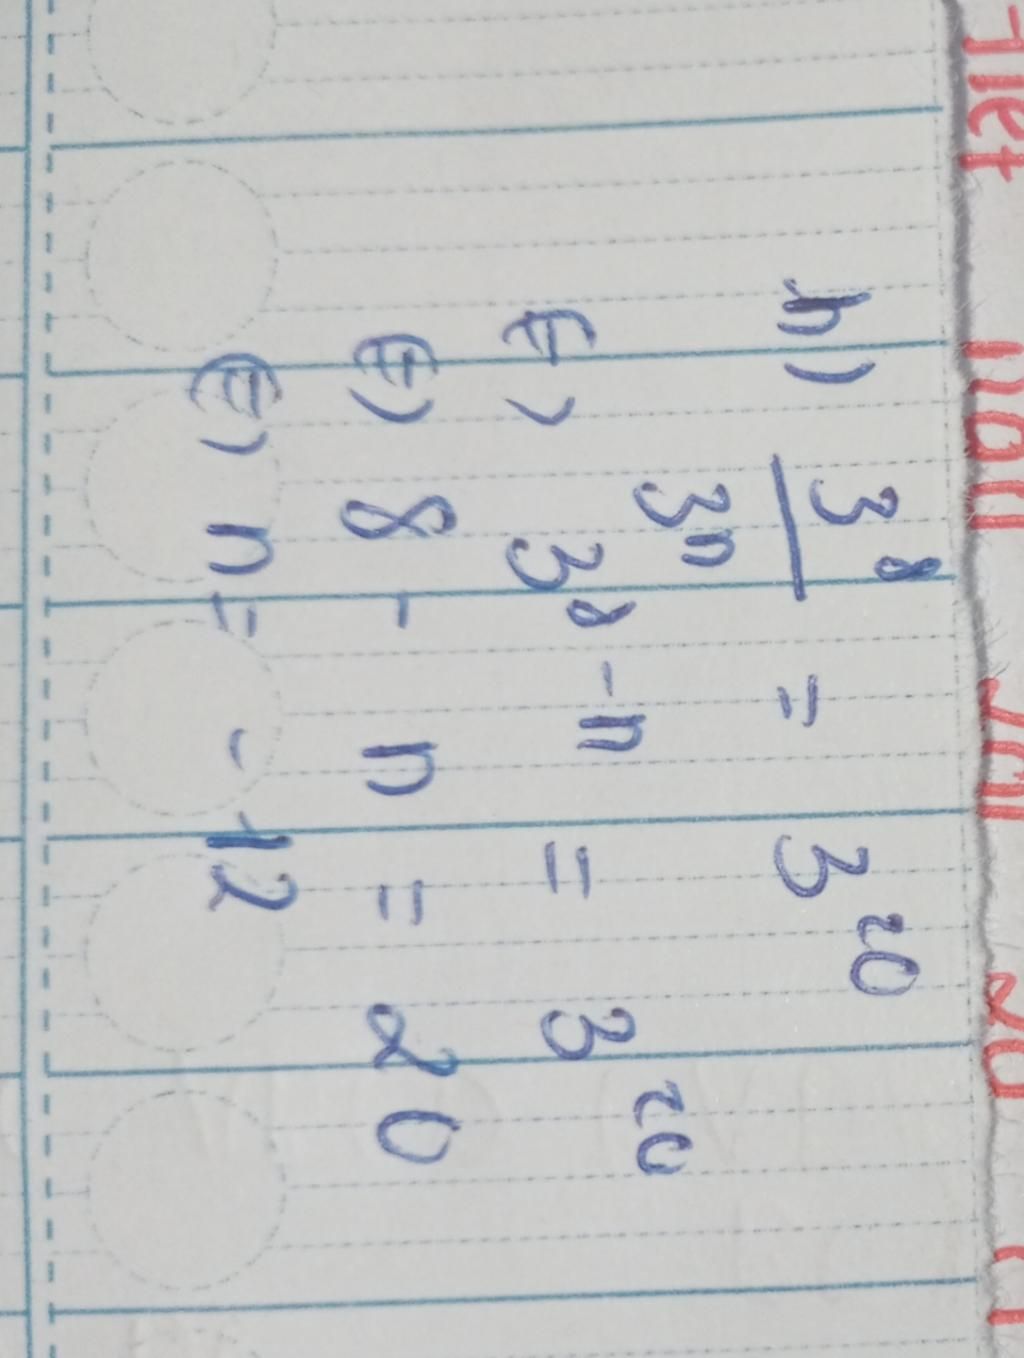 h) 3^8 / 3^n = 3^20
(=) 3^8-n = 3^20
(=) 8 - n = 20
(=) n = -12